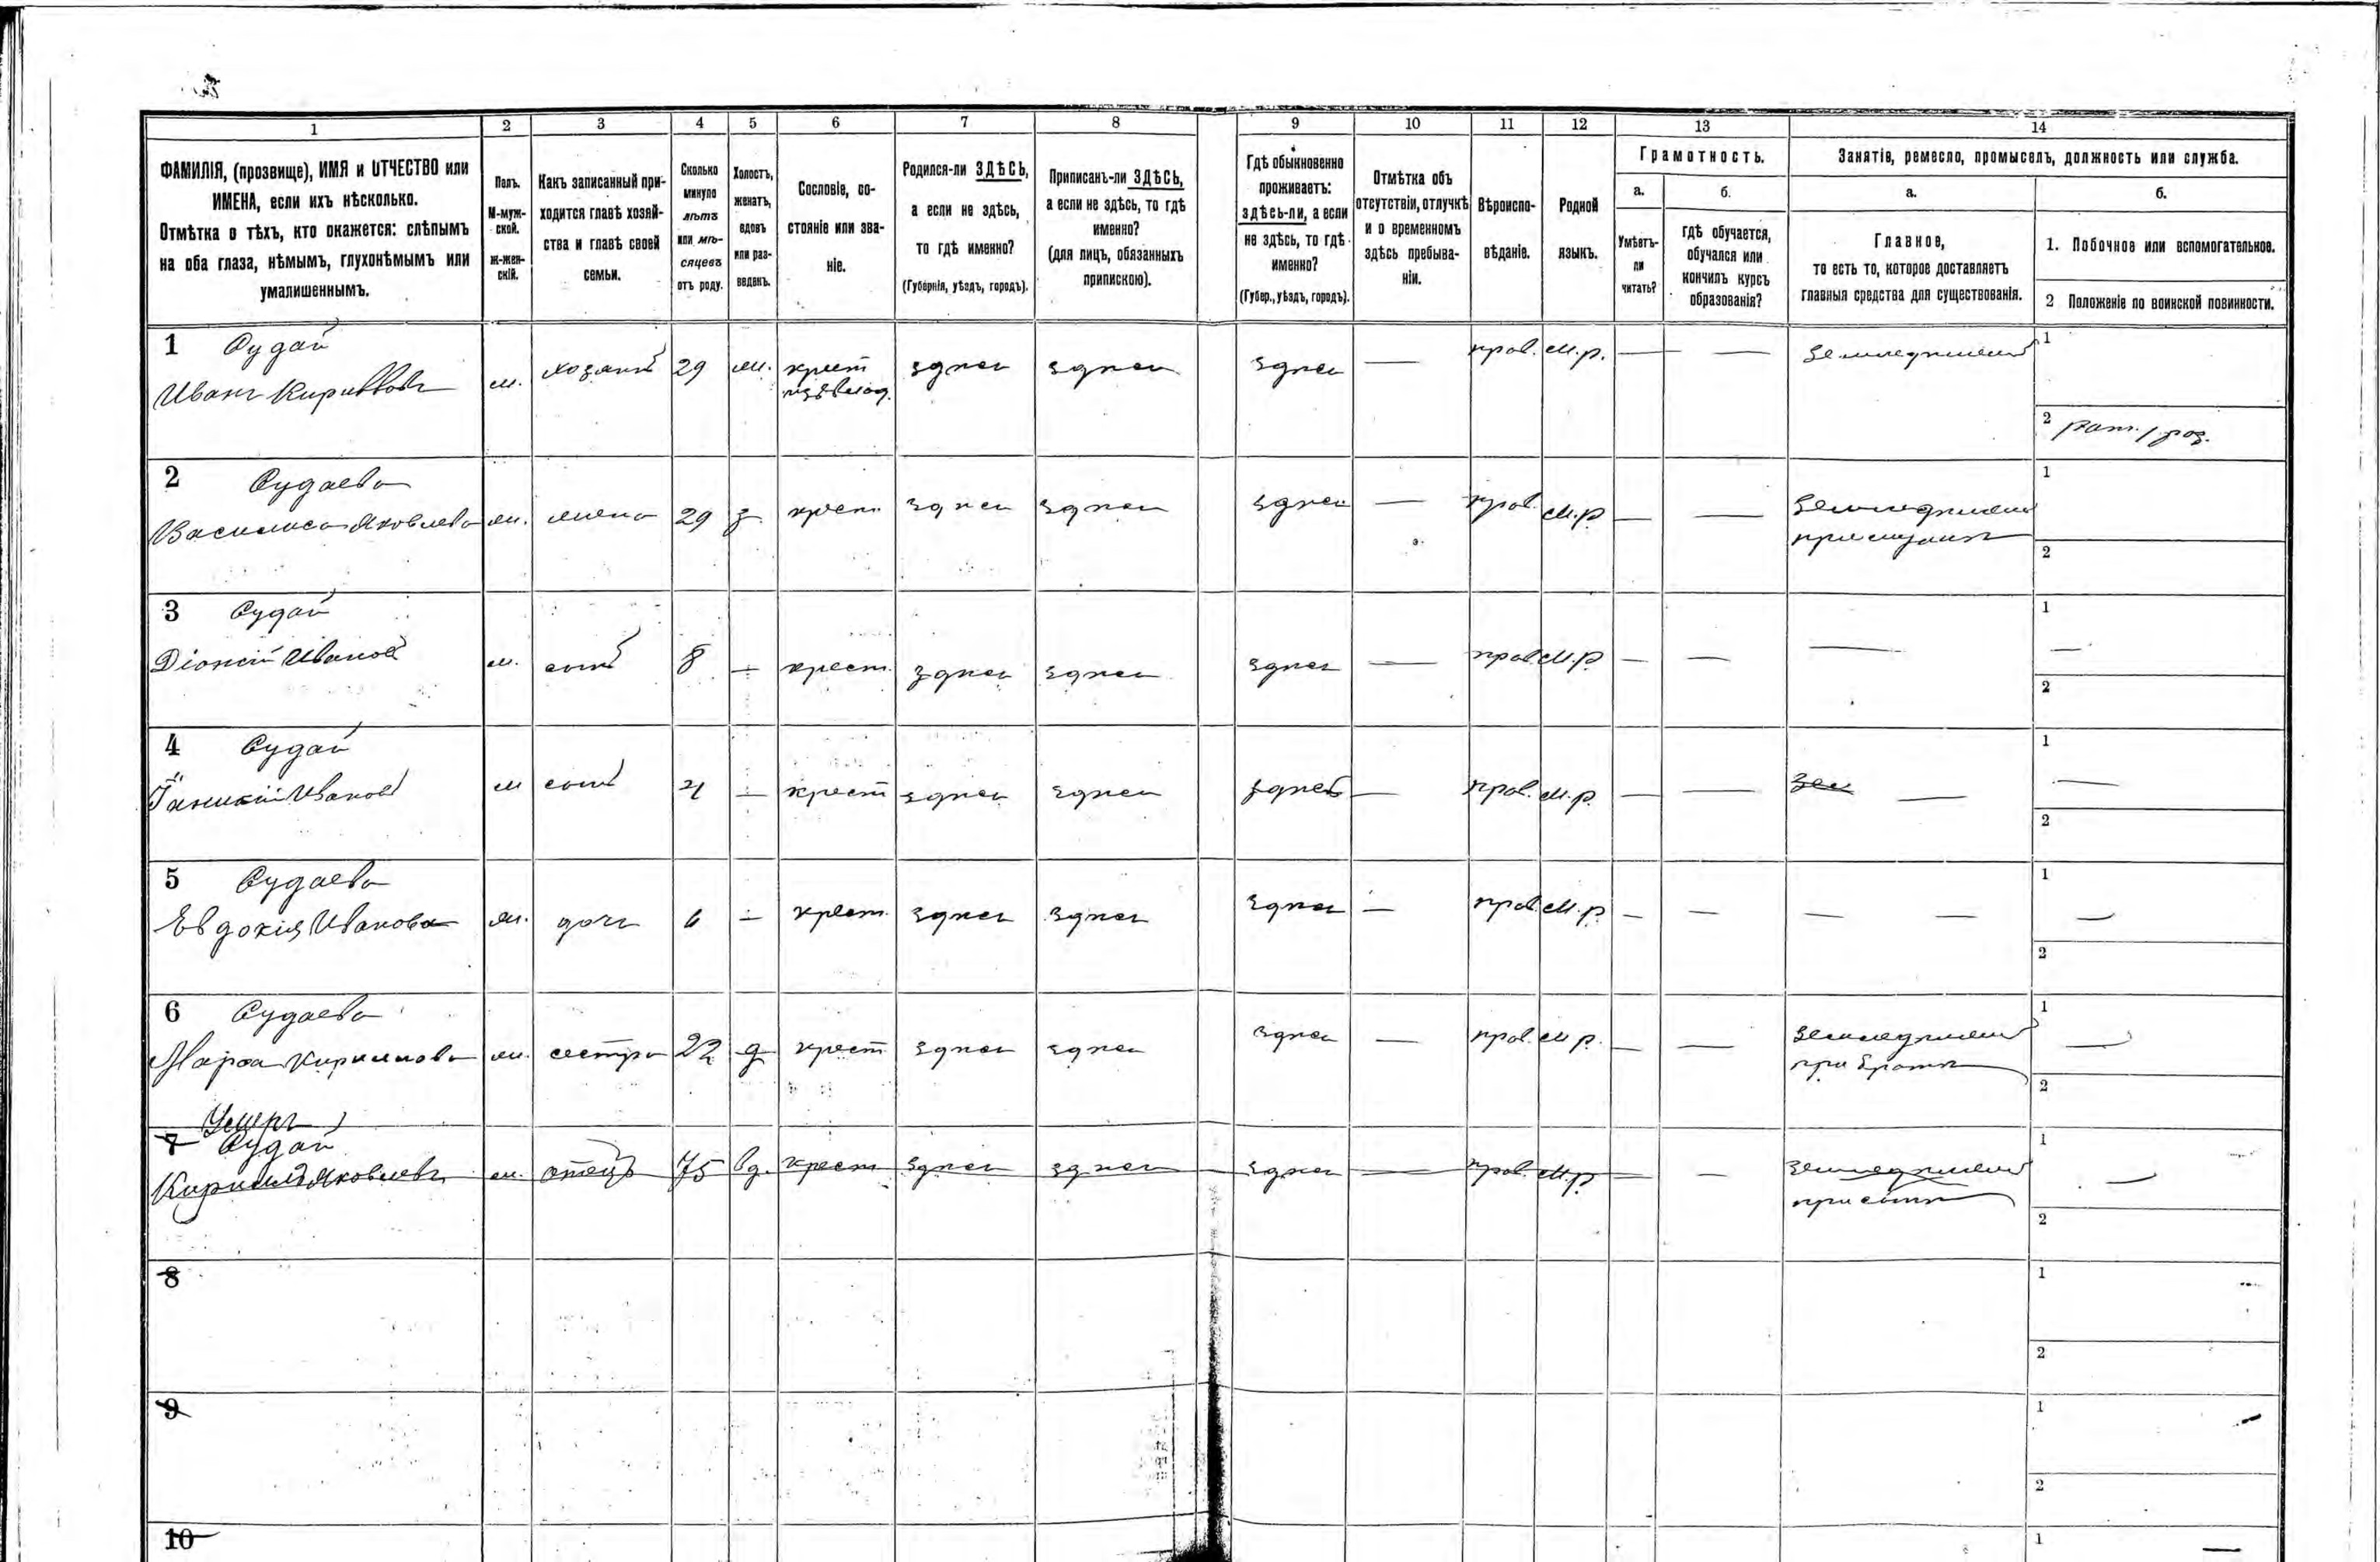 1 2 3 4 5 6 7 8 9 10 11 12 13 14
ФАМИЛІЯ, (прозвище), ИМЯ и ОТЧЕСТВО или
ИМЕНА, если ихъ нѣсколько.
Отмѣтка о тѣхъ, кто окажется: слѣпымъ
на оба глаза, нѣмымъ, глухонѣмымъ или
умалишеннымъ.
Полъ.
М-муж-
ской.
ж-жен-
скій.
Какъ записанный при-
ходится главѣ хозяй-
ства и главѣ своей
семьи.
Сколько
минуло
лѣтъ
или мѣ-
сяцевъ
отъ роду.
Холостъ,
женатъ,
вдовъ
или раз-
веденъ.
Сословіе, со-
стояніе или зва-
ніе.
Родился-ли ЗДѢСЬ,
а если не здѣсь,
то гдѣ именно?
(Губернія, уѣздъ, городъ).
Приписанъ-ли ЗДѢСЬ,
а если не здѣсь, то гдѣ
именно?
(для лицъ, обязанныхъ
припискою).
Гдѣ обыкновенно
проживаетъ:
здѣсь-ли, а если
не здѣсь, то гдѣ
именно?
(Губер., уѣздъ, городъ).
Отмѣтка объ
отсутствіи, отлучкѣ
и о временномъ
здѣсь пребыва-
ніи.
Вѣроиспо-
вѣданіе.
Родной
языкъ.
Грамотность.
а.
Умѣетъ-
ли
читать?
б.
гдѣ обучается,
обучался или
кончилъ курсъ
образованія?
Занятіе, ремесло, промыселъ, должность или служба.
а.
Главное,
то есть то, которое доставляетъ
главныя средства для существованія.
б.
1. Побочное или вспомогательное.
2 Положеніе по воинской повинности.
1 Судай
Иванъ Кирилловъ м. хозяинъ 29 ж. крест здѣсь здѣсь здѣсь — прав. м.р. — — Земледѣлецъ 1
изъ влад.
2 рат. 1 раз.
2 Судаева
Василиса Яковлева ж. жена 29 з. крест. здѣсь здѣсь здѣсь — прав. м.р — — Земледѣлец 1
при мужѣ 2
3 Судай
Иванов м. сынъ 8 — крест. здѣсь здѣсь здѣсь — прав. м.р — — — 1 —
2
4 Судай
Иванов м сынъ 4 — крест здѣсь здѣсь здѣсь — прав. м.р. — — зем — 1 —
2
5 Судаева
Евдокія Иванова ж. дочь 6 — крест. здѣсь здѣсь здѣсь — прав. м.р. — — — — 1 —
2
6 Судаева
Марѳа Кириллова ж. сестра 22 д крест здѣсь здѣсь здѣсь — прав. м р. — — Земледѣлец 1 —
при братѣ 2
Умеръ
7 Судай
Кириллъ Яковлевъ м. отецъ 75 вд. крест здѣсь здѣсь здѣсь — прав. м.р. — — земледѣлец 1 —
при сынѣ 2
8 1
2
9 1
2
10 1